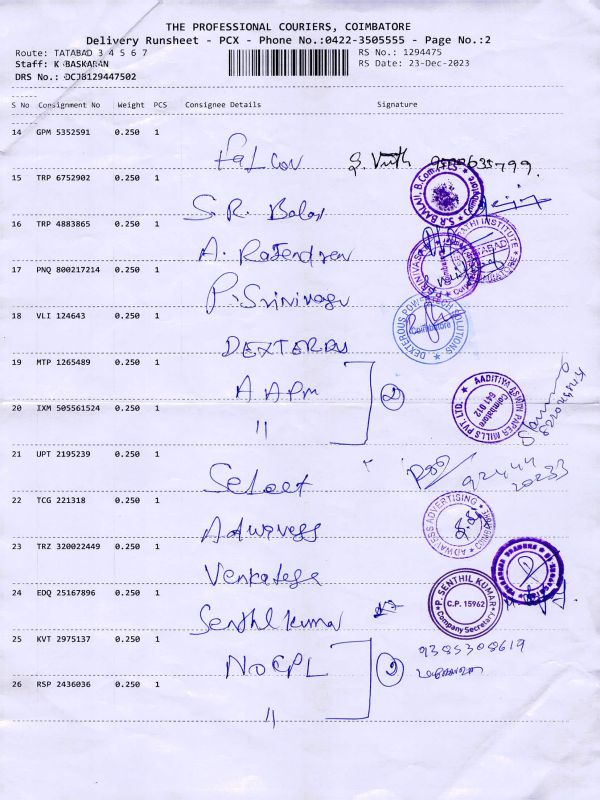 THE PROFESSIONAL COURIERS, COIMBATORE
Delivery Runsheet - PCX - Phone No.:0422-3505555 - Page No.:2
Route: TATABAD 3 4 5 6 7 RS No.: 1294475
Staff: K BASKARAN RS Date: 23-Dec-2023
DRS No.: DCJB129447502
S No Consignment No Weight PCS Consignee Details Signature
14 GPM 5352591 0.250 1
Falcon
15 TRP 6752902 0.250 1
S.R. Balaji
S.R BALAJI, B.Com.
16 TRP 4883865 0.250 1
A. Rajendran
INSTITUTE
17 PNQ 800217214 0.250 1
P. Srinivasan
18 VLI 124643 0.250 1
DEXTEROUS
DEXTEROUS POWERTECH SOLUTIONS
Coimbatore
19 MTP 1265489 0.250 1
A A P M
2
AADITIYA ASWIN PAPER MILLS PVT. LTD.
Coimbatore
641 012
20 IXM 505561524 0.250 1
"
21 UPT 2195239 0.250 1
Select
92444
20233
22 TCG 221318 0.250 1
Adwavess
ADWAVESS ADVERTISING
23 TRZ 320022449 0.250 1
Venkatesa
24 EDQ 25167896 0.250 1
Senthil kumar
P. SENTHIL KUMAR
C.P. 15962
Company Secretary
25 KVT 2975137 0.250 1
NOCPL
2
9385308619
26 RSP 2436036 0.250 1
"